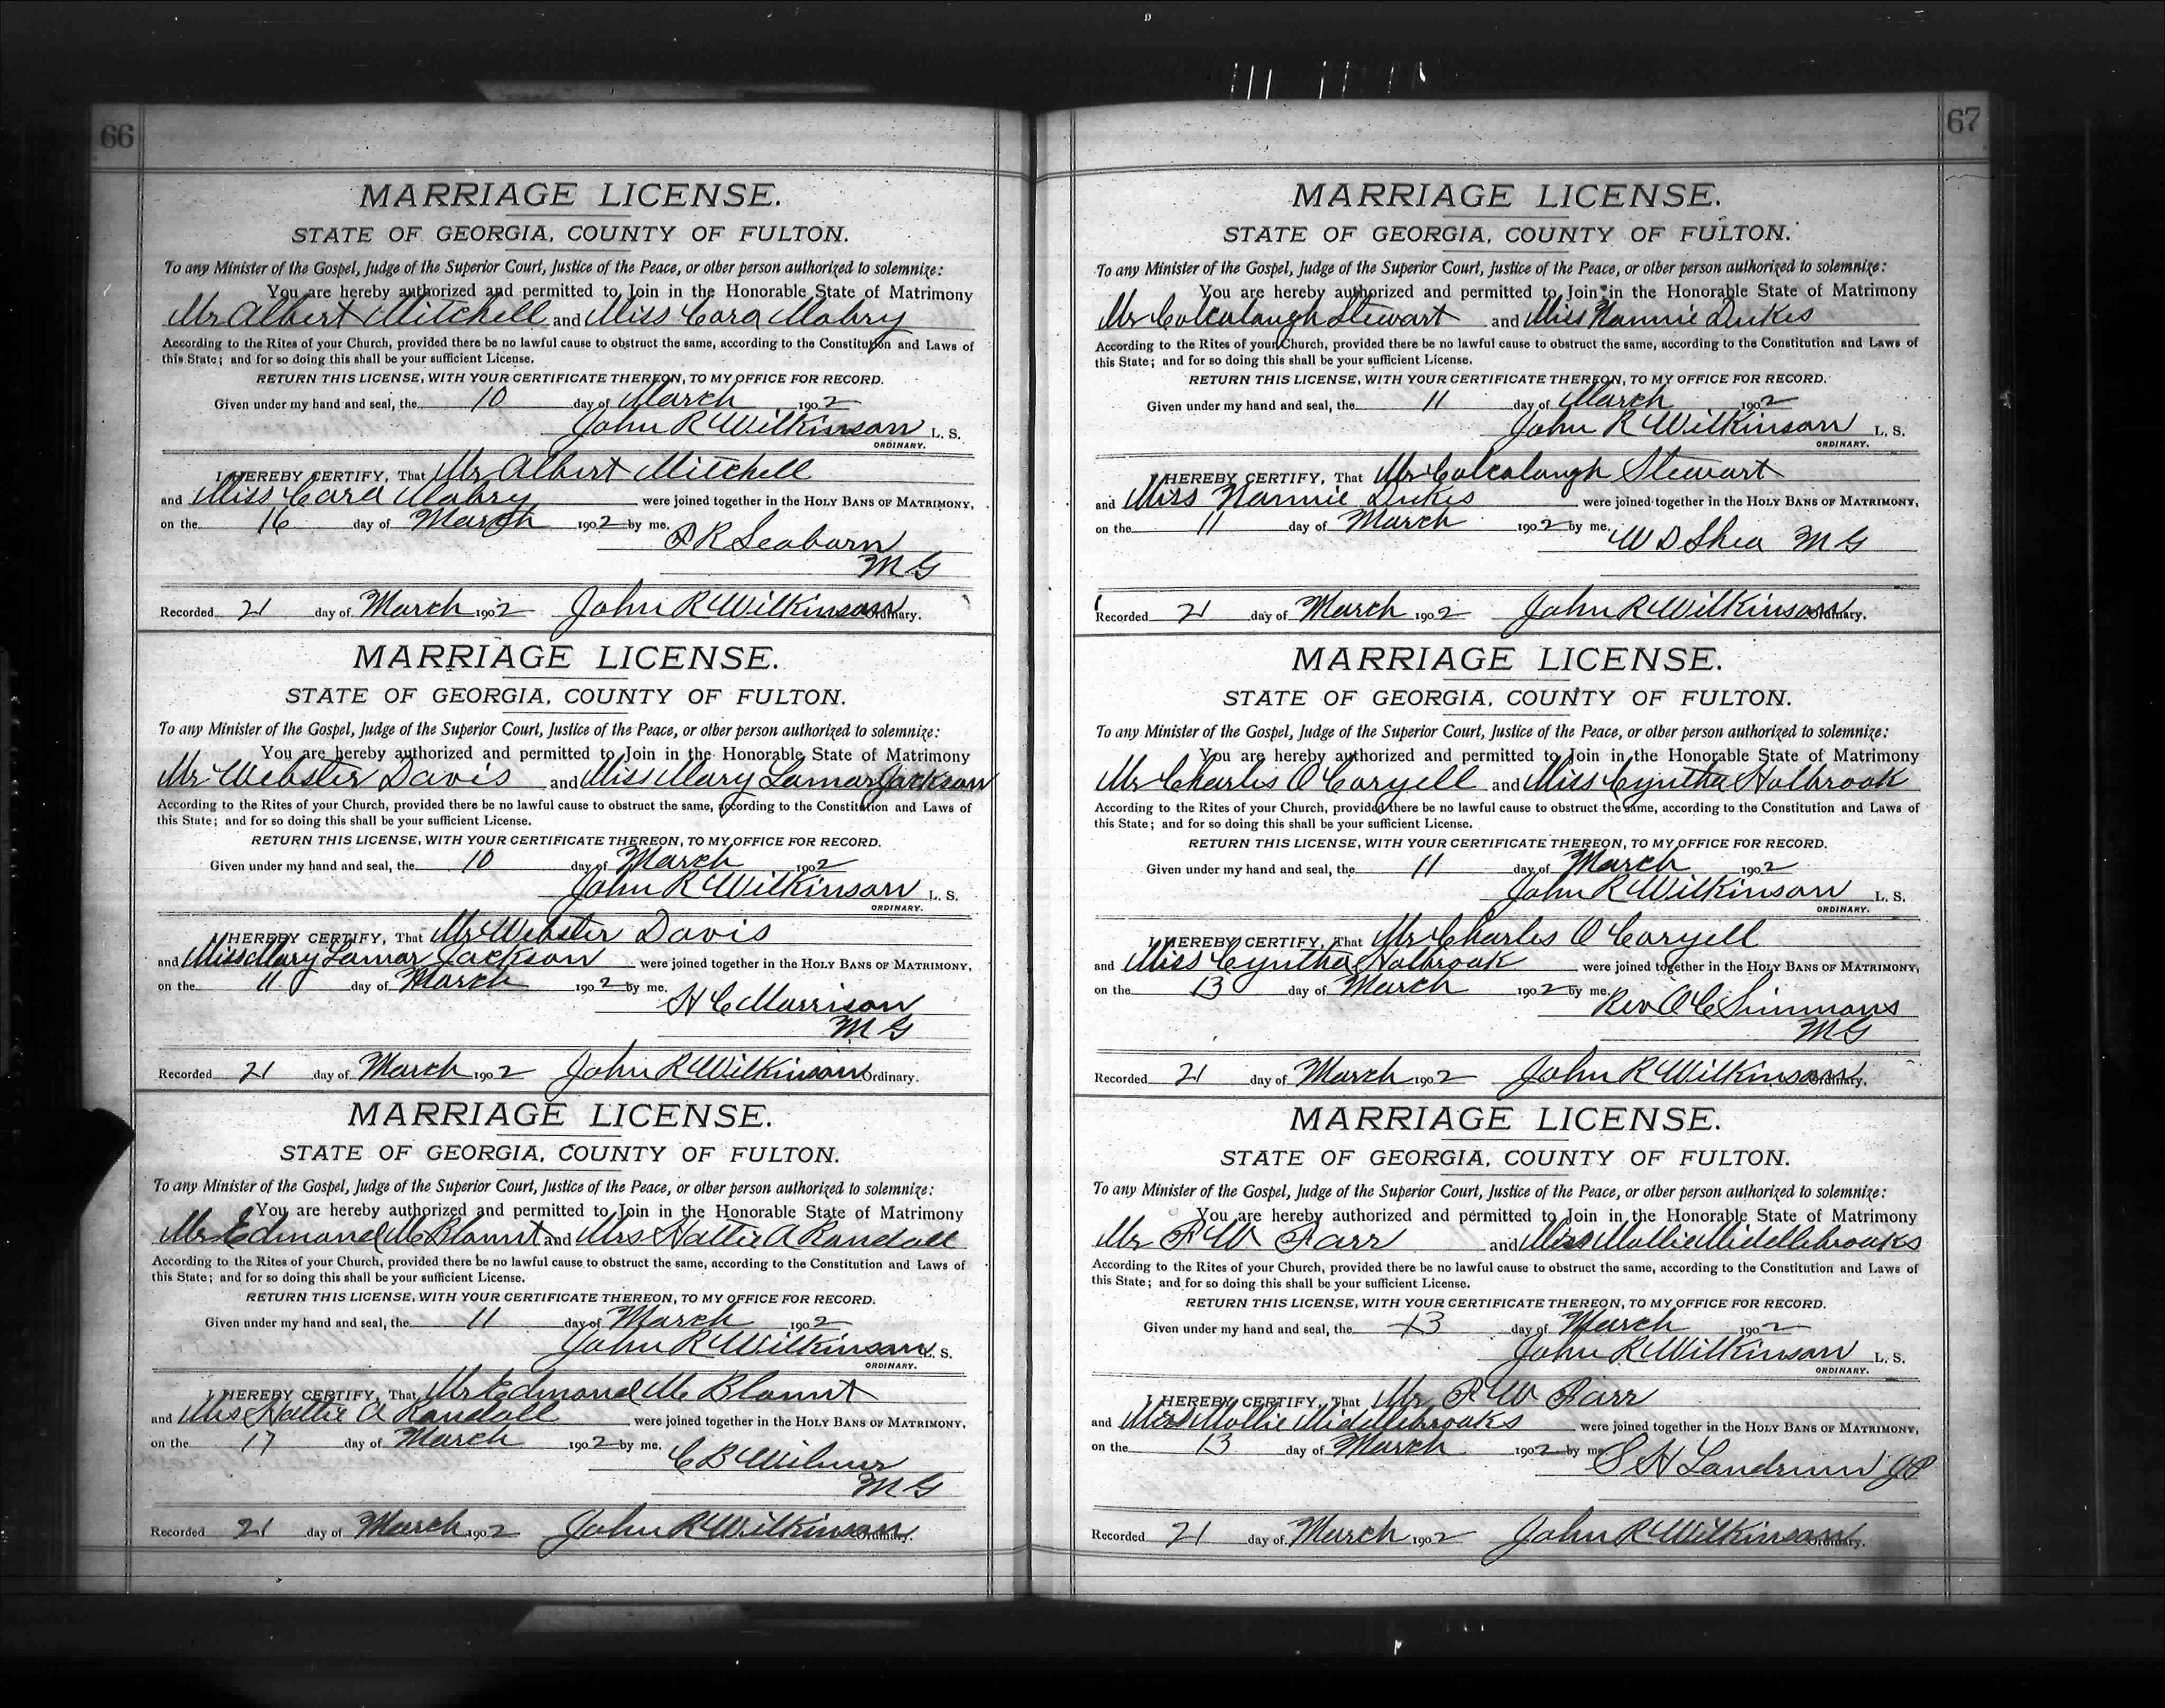 66
MARRIAGE LICENSE.
STATE OF GEORGIA, COUNTY OF FULTON.
To any Minister of the Gospel, Judge of the Superior Court, Justice of the Peace, or other person authorized to solemnize:
You are hereby authorized and permitted to Join in the Honorable State of Matrimony
Mr Albert Mitchell and Miss Cora Mabry
According to the Rites of your Church, provided there be no lawful cause to obstruct the same, according to the Constitution and Laws of
this State; and for so doing this shall be your sufficient License.
RETURN THIS LICENSE, WITH YOUR CERTIFICATE THEREON, TO MY OFFICE FOR RECORD.
Given under my hand and seal, the 10 day of March 1902
John R Wilkinson L. S.
ORDINARY.
I HEREBY CERTIFY, That Mr Albert Mitchell
and Miss Cora Mabry were joined together in the HOLY BANS OF MATRIMONY,
on the 16 day of March 1902 by me.
R Seaborn
M G
Recorded 21 day of March 1902 John R Wilkinson Ordinary.
MARRIAGE LICENSE.
STATE OF GEORGIA, COUNTY OF FULTON.
To any Minister of the Gospel, Judge of the Superior Court, Justice of the Peace, or other person authorized to solemnize:
You are hereby authorized and permitted to Join in the Honorable State of Matrimony
Mr Webster Davis and Miss Mary Lamar Jackson
According to the Rites of your Church, provided there be no lawful cause to obstruct the same, according to the Constitution and Laws of
this State; and for so doing this shall be your sufficient License.
RETURN THIS LICENSE, WITH YOUR CERTIFICATE THEREON, TO MY OFFICE FOR RECORD.
Given under my hand and seal, the 10 day of March 1902
John R Wilkinson L. S.
ORDINARY.
I HEREBY CERTIFY, That Mr Webster Davis
and Miss Mary Lamar Jackson were joined together in the HOLY BANS OF MATRIMONY,
on the 11 day of March 1902 by me.
H C Morrison
M G
Recorded 21 day of March 1902 John R Wilkinson Ordinary.
MARRIAGE LICENSE.
STATE OF GEORGIA, COUNTY OF FULTON.
To any Minister of the Gospel, Judge of the Superior Court, Justice of the Peace, or other person authorized to solemnize:
You are hereby authorized and permitted to Join in the Honorable State of Matrimony
Mr Edmond M Blount and Mrs Hattie A Randall
According to the Rites of your Church, provided there be no lawful cause to obstruct the same, according to the Constitution and Laws of
this State; and for so doing this shall be your sufficient License.
RETURN THIS LICENSE, WITH YOUR CERTIFICATE THEREON, TO MY OFFICE FOR RECORD.
Given under my hand and seal, the 11 day of March 1902
John R Wilkinson L. S.
ORDINARY.
I HEREBY CERTIFY, That Mr Edmond M Blount
and Mrs Hattie A Randall were joined together in the HOLY BANS OF MATRIMONY,
on the 17 day of March 1902 by me.
C B Wilmer
M G
Recorded 21 day of March 1902 John R Wilkinson Ordinary.
67
MARRIAGE LICENSE.
STATE OF GEORGIA, COUNTY OF FULTON.
To any Minister of the Gospel, Judge of the Superior Court, Justice of the Peace, or other person authorized to solemnize:
You are hereby authorized and permitted to Join in the Honorable State of Matrimony
Mr Colcalough Stewart and Miss Nannie Dukes
According to the Rites of your Church, provided there be no lawful cause to obstruct the same, according to the Constitution and Laws of
this State; and for so doing this shall be your sufficient License.
RETURN THIS LICENSE, WITH YOUR CERTIFICATE THEREON, TO MY OFFICE FOR RECORD.
Given under my hand and seal, the 11 day of March 1902
John R Wilkinson L. S.
ORDINARY.
I HEREBY CERTIFY, That Mr Colcalough Stewart
and Miss Nannie Dukes were joined together in the HOLY BANS OF MATRIMONY,
on the 11 day of March 1902 by me.
W D Shea M G
Recorded 21 day of March 1902 John R Wilkinson Ordinary.
MARRIAGE LICENSE.
STATE OF GEORGIA, COUNTY OF FULTON.
To any Minister of the Gospel, Judge of the Superior Court, Justice of the Peace, or other person authorized to solemnize:
You are hereby authorized and permitted to Join in the Honorable State of Matrimony
Mr Charles O Coryell and Miss Cyntha Holbrook
According to the Rites of your Church, provided there be no lawful cause to obstruct the same, according to the Constitution and Laws of
this State; and for so doing this shall be your sufficient License.
RETURN THIS LICENSE, WITH YOUR CERTIFICATE THEREON, TO MY OFFICE FOR RECORD.
Given under my hand and seal, the 11 day of March 1902
John R Wilkinson L. S.
ORDINARY.
I HEREBY CERTIFY, That Mr Charles O Coryell
and Miss Cyntha Holbrook were joined together in the HOLY BANS OF MATRIMONY,
on the 13 day of March 1902 by me.
Rev O C Simmons
M G
Recorded 21 day of March 1902 John R Wilkinson Ordinary.
MARRIAGE LICENSE.
STATE OF GEORGIA, COUNTY OF FULTON.
To any Minister of the Gospel, Judge of the Superior Court, Justice of the Peace, or other person authorized to solemnize:
You are hereby authorized and permitted to Join in the Honorable State of Matrimony
Mr W and Miss Mollie Middlebrooks
According to the Rites of your Church, provided there be no lawful cause to obstruct the same, according to the Constitution and Laws of
this State; and for so doing this shall be your sufficient License.
RETURN THIS LICENSE, WITH YOUR CERTIFICATE THEREON, TO MY OFFICE FOR RECORD.
Given under my hand and seal, the 13 day of March 1902
John R Wilkinson L. S.
ORDINARY.
I HEREBY CERTIFY, That Mr W
and Miss Mollie Middlebrooks were joined together in the HOLY BANS OF MATRIMONY,
on the 13 day of March 1902 by me.
S H Landrum JP
Recorded 21 day of March 1902 John R Wilkinson Ordinary.